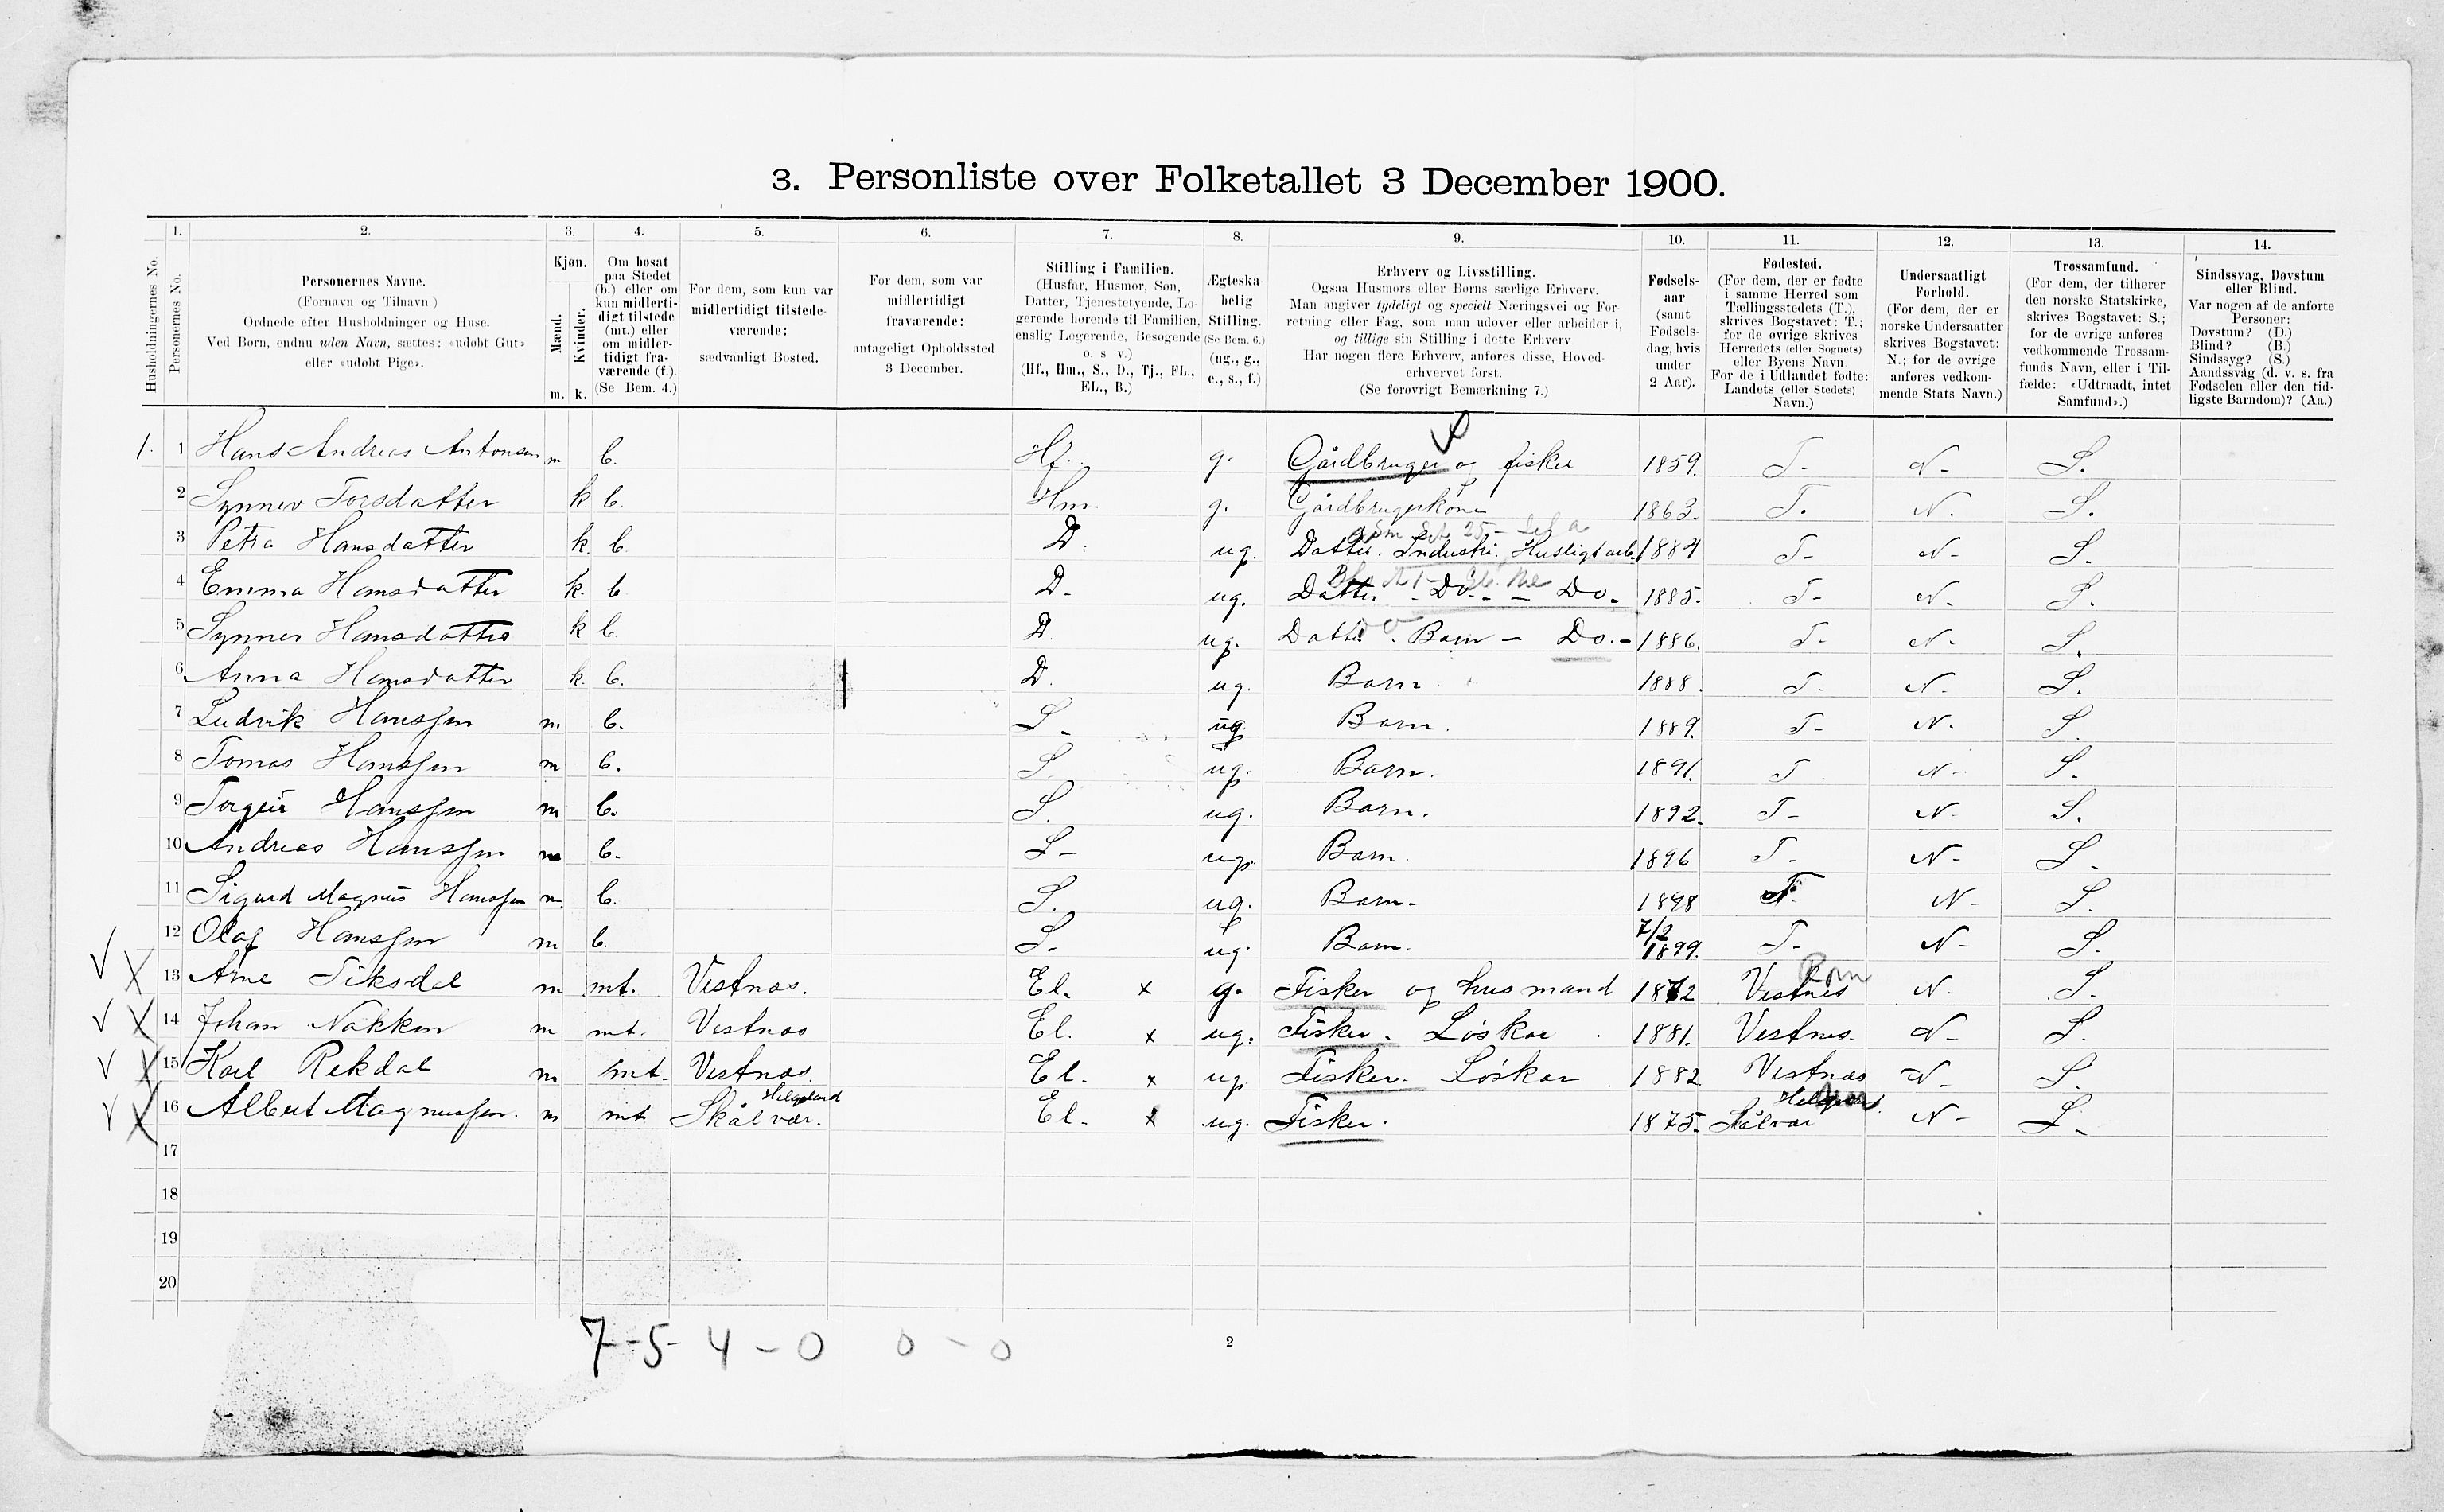 3. Personliste over Folketallet 3 December 1900.
1. 2. 3. 4. 5. 6. 7. 8. 9. 10. 11. 12. 13. 14.
Husholdningernes No.
Personernes No.
Personernes Navne.
(Fornavn og Tilnavn)
Ordnede efter Husholdninger og Huse.
Ved Børn, endnu uden Navn, sættes: «udøbt Gut»
eller «udøbt Pige».
Kjøn.
Mænd.
Kvinder.
m. k.
Om bosat
paa Stedet
(b.) eller om
kun midlerti-
digt tilstede
(mt.) eller
om midler-
tidigt fra-
værende (f.).
(Se Bem. 4.)
For dem, som kun var
midlertidigt tilstede-
værende:
sædvanligt Bosted.
For dem, som var
midlertidigt
fraværende:
antageligt Opholdssted
3 December.
Stilling i Familien.
(Husfar, Husmor, Søn,
Datter, Tjenestetyende, Lo-
gerende hørende til Familien,
enslig Logerende, Besøgende
o. s v.)
(Hf., Hm., S., D., Tj., FL.,
EL., B.)
Ægteska-
belig
Stilling.
(Se Bem. 6.)
(ug., g.,
e., s., f.)
Erhverv og Livsstilling.
Ogsaa Husmors eller Børns særlige Erhverv.
Man angiver tydeligt og specielt Næringsvei og For-
retning eller Fag, som man udøver eller arbeider i,
og tillige sin Stilling i dette Erhverv
Har nogen flere Erhverv, anføres disse, Hoved-
erhvervet først.
(Se forøvrigt Bemærkning 7.)
Fødsels-
aar
(samt
Fødsels-
dag, hvis
under
2 Aar).
Fødested.
(For dem, der er fødte
i samme Herred som
Tællingsstedets (T.),
skrives Bogstavet: T.;
for de øvrige skrives
Herredets (eller Sognets)
eller Byens Navn
For de i Udlandet fødte:
Landets (eller Stedets)
Navn.)
Undersaatligt
Forhold.
(For dem, der er
norske Undersaatter
skrives Bogstavet:
N.; for de øvrige
anføres vedkom-
mende Stats Navn.)
Trossamfund.
(For dem, der tilhører
den norske Statskirke,
skrives Bogstavet: S.;
for de øvrige anføres
vedkommende Trossam-
funds Navn, eller i Til-
fælde: «Udtraadt, intet
Samfund».)
Sindssvag, Døvstum
eller Blind.
Var nogen af de anførte
Personer:
Døvstum? (D.)
Blind? (B.)
Sindssyg? (S.)
Aandssvag (d. v. s. fra
Fødselen eller den tid-
ligste Barndom)? (Aa.)
1. 1 Hans Andreas Antonsen m b. Hf. g. Gårdbruger og fisker 1859. T- N- S.
2 Synnev Torsdatter k. b. Hm. g. Gårdbrugerkone 1863. T. N. S.
3 Petra Hansdatter k. b. D. ug. Datter. Industri. Husligt arb. 1884 T- N- S.
4 Emma Hansdatter k. b D- ug. Datter - Do. - Do. 1885. T- N. S.
5 Synnev Hansdatter k b. D. ug. Datter. Barn - Do. - 1886. T- N- S.
6 Anna Hansdatter k. b. D. ug. Barn. 1888. T- N. S.
7 Ludvik Hanssen m b. S- ug Barn. 1889. T- N. S.
8 Tomas Hanssen m b. S. ug. Barn. 1891. T N- S.
9 Torgeir Hanssen m b. S. ug. Barn. 1892. T- N. S.
10 Andreas Hanssen m b. S- ug. Barn. 1896 T- N- S-
11 Sigurd Magnus Hanssen m. b. S. ug. Barn- 1898 T. N- S.
12 Olaf Hanssen m b. S. ug. Barn. 7/2 1899. T- N- S.
13 Arne Tiksdal m mt. Vestnæs. El. x g. Fisker og husmand 1872 Vestnes N- S.
14 Johan Nakken m mt. Vestnæs El. x ug. Fisker. Løskar 1881. Vestnes. N- S.
15 Karl Rekdal m mt. Vestnæs. El. x ug Fisker. Løskar 1882 Vestnæs N- S.
Helgeland
16 Albert Magnussen. m mt Skålvær. El. x ug. Fisker. 1875. Skålvær N- S-
17
18
19
20
7-5-4-0 0-0
2